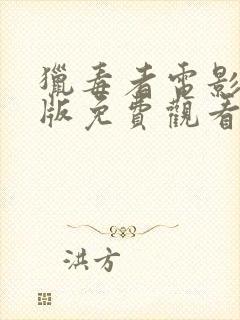 獵毒者電影
版免費觀看
洪方